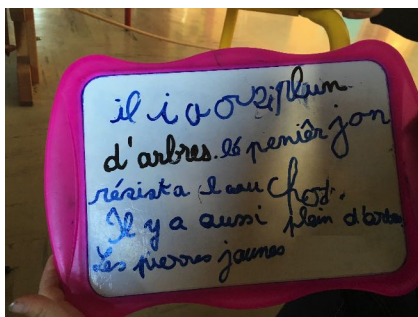 il i a o zi plain
d'arbres. lé peniêr jon
résist a l eau chod.
Il y a aussi plein d'arbres
Les pierres jaunes